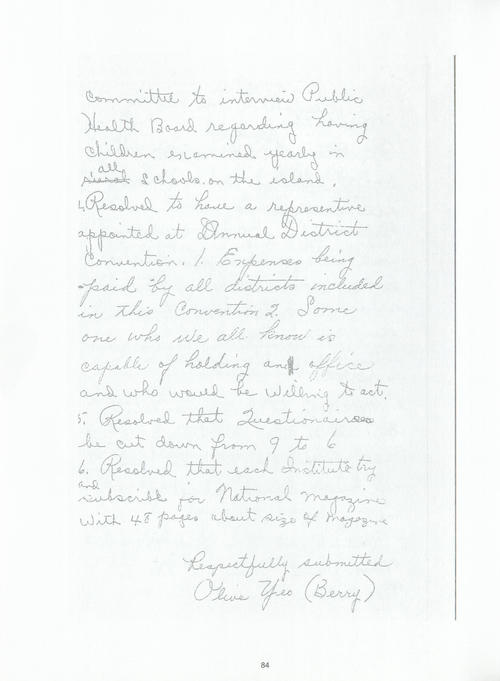 committee to interview Public
Health Board regarding having
children examined yearly in
all
schools on the island.
4. Resolved to have a representive
appointed at Annual District
Convention. 1. Expenses being
paid by all districts included
in this Convention 2. Some
one who we all know is
capable of holding an office
and who would be willing to act.
5. Resolved that Questionaires
be cut down from 9 to 6
6. Resolved that each Institute try
and
subscribe for National magazine
with 48 pages about size of magazine
Respectfully submitted
Olive Yeo (Berry)
84